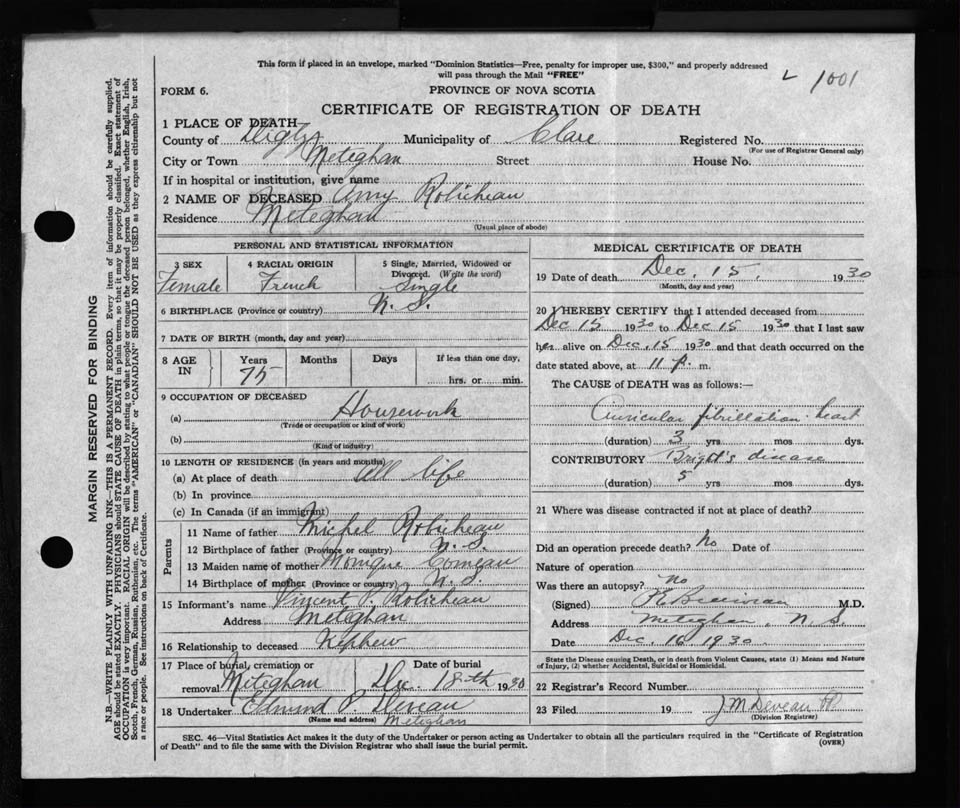 This form if placed in an envelope, marked "Dominion Statistics—Free, penalty for improper use, $300," and properly addressed
will pass through the Mail "FREE"
1001
FORM 6.
PROVINCE OF NOVA SCOTIA
CERTIFICATE OF REGISTRATION OF DEATH
1 PLACE OF DEATH
County of Digby Municipality of Clare Registered No.
(For use of Registrar General only)
City or Town Meteghan Street House No.
If in hospital or institution, give name
2 NAME OF DECEASED Amy Robicheau
Residence Meteghan
(Usual place of abode)
PERSONAL AND STATISTICAL INFORMATION
3 SEX 4 RACIAL ORIGIN 5 Single, Married, Widowed or
Divorced. (Write the word)
Female French Single
6 BIRTHPLACE (Province or country) N. S.
7 DATE OF BIRTH (month, day and year)
8 AGE IN Years Months Days If less than one day,
75 hrs. or min.
9 OCCUPATION OF DECEASED
(a) Housework
(Trade or occupation or kind of work)
(b)
(Kind of industry)
10 LENGTH OF RESIDENCE (in years and months)
(a) At place of death All life
(b) In province
(c) In Canada (if an immigrant)
Parents
11 Name of father Michel Robicheau
12 Birthplace of father (Province or country) N. S.
13 Maiden name of mother Monique Comeau
14 Birthplace of mother (Province or country) N. S.
15 Informant's name Vincent P. Robicheau
Address Meteghan
16 Relationship to deceased Nephew
17 Place of burial, cremation or Date of burial
removal Meteghan Dec 18th 1930
18 Undertaker Edmund P. Deveau
(Name and address) Meteghan
MEDICAL CERTIFICATE OF DEATH
19 Date of death Dec. 15. 1930
(Month, day and year)
20 I HEREBY CERTIFY that I attended deceased from
Dec 15 1930 to Dec 15 1930 that I last saw
her alive on Dec. 15 1930 and that death occurred on the
date stated above, at 11 P. m.
The CAUSE of DEATH was as follows:—
Auricular fibrillation heart
(duration) 3 yrs mos dys.
CONTRIBUTORY Bright's disease
(duration) 5 yrs mos dys.
21 Where was disease contracted if not at place of death?
Did an operation precede death? No Date of
Nature of operation
Was there an autopsy? No
(Signed) M.D.
Address Meteghan, N. S.
Date Dec. 16 1930.
State the Disease causing Death, or in death from Violent Causes, state (1) Means and Nature
of Injury, (2) whether Accidental, Suicidal or Homicidal.
22 Registrar's Record Number
23 Filed 19 J. M. Deveau
(Division Registrar)
SEC. 46—Vital Statistics Act makes it the duty of the Undertaker or person acting as Undertaker to obtain all the particulars required in the "Certificate of Registration
of Death" and to file the same with the Division Registrar who shall issue the burial permit.
(OVER)
MARGIN RESERVED FOR BINDING
N.B—WRITE PLAINLY WITH UNFADING INK—THIS IS A PERMANENT RECORD. Every item of information should be carefully supplied.
AGE should be stated EXACTLY. PHYSICIANS should STATE CAUSE OF DEATH in plain terms, so that it may be properly classified. Exact statement of
OCCUPATION is very important. RACIAL ORIGIN will be described by stating to what people or tongue the deceased person belonged, whether English, Irish,
Scotch, French, German, Russian, Ruthenian, etc. The terms "AMERICAN" or "CANADIAN" SHOULD NOT BE USED as they express citizenship but not
a race or people. See instructions on back of Certificate.